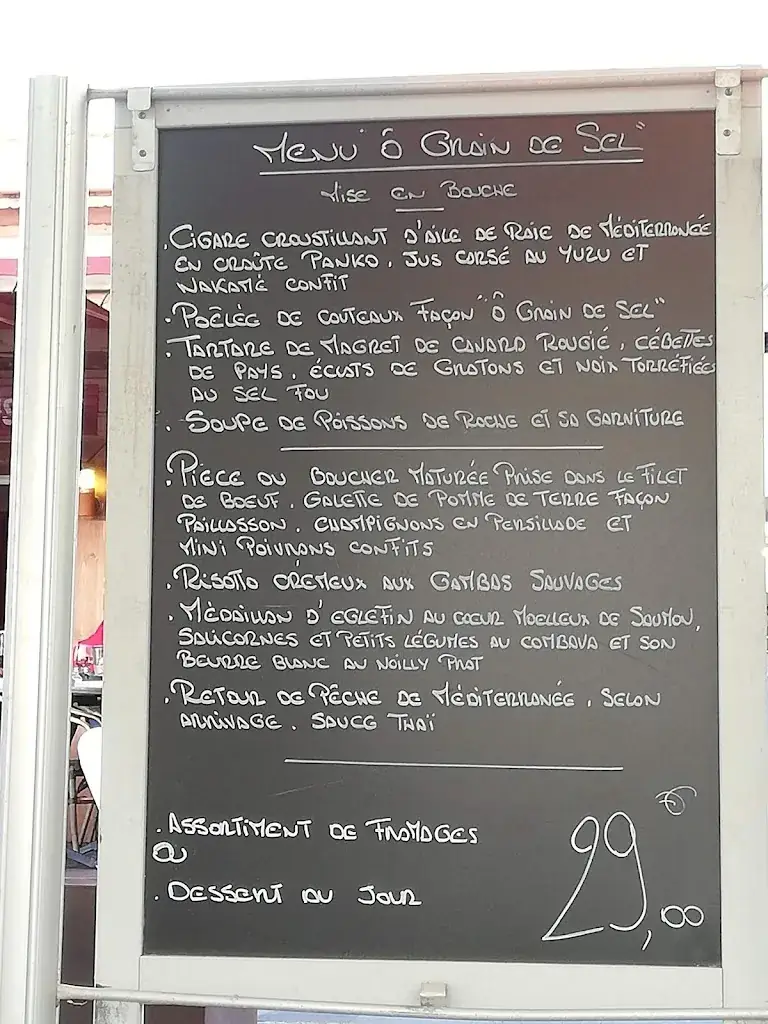 MENU "Ô GRAIN DE SEL"
MISE EN BOUCHE
. CIGARE CROUSTILLANT D'AILE DE RAIE DE MÉDITERRANÉE
EN CROÛTE PANKO, JUS CORSÉ AU YUZU ET
WAKAMÉ CONFIT
. POÊLÉE DE COUTEAUX FAÇON "Ô GRAIN DE SEL"
. TARTARE DE MAGRET DE CANARD ROUGIÉ, CÉBETTES
DE PAYS, ÉCLATS DE GRATONS ET NOIX TORRÉFIÉES
AU SEL FOU
. SOUPE DE POISSONS DE ROCHE ET SA GARNITURE
. PIÈCE DU BOUCHER MATURÉE PRISE DANS LE FILET
DE BOEUF, GALETTE DE POMME DE TERRE FAÇON
PAILLASSON, CHAMPIGNONS EN PERSILLADE ET
MINI POIVRONS CONFITS
. RISOTTO CRÉMEUX AUX GAMBAS SAUVAGES
. MÉDAILLON D'EGLEFIN AU COEUR MOELLEUX DE SAUMON,
SALICORNES ET PETITS LÉGUMES AU COMBAVA ET SON
BEURRE BLANC AU NOILLY PRAT
. RETOUR DE PÊCHE DE MÉDITERRANÉE, SELON
ARRIVAGE, SAUCE THAÏ
. ASSORTIMENT DE FROMAGES
OU
. DESSERT DU JOUR
29,00 €